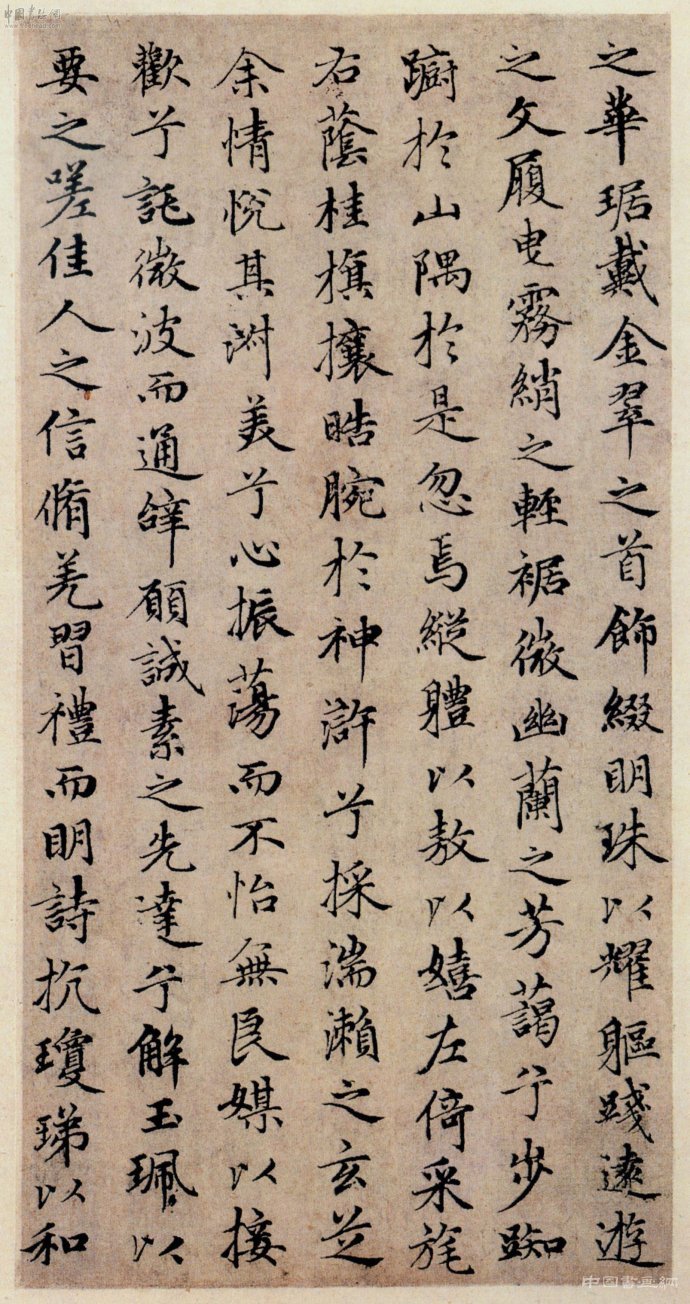 之華琚戴金翠之首飾綴明珠以耀軀踐遠遊
之文履曳霧綃之輕裾微幽蘭之芳藹兮步踟
躕於山隅於是忽焉縱軆以敖以嬉左倚采旄
右蔭桂旗攘晧腕於神滸兮採湍瀨之玄芝
余情悅其淑美兮心振蕩而不怡無良媒以接
歡兮託微波而通辭願誠素之先達兮解玉珮以
要之嗟佳人之信脩羌習禮而明詩抗瓊珶以和
中国書画網